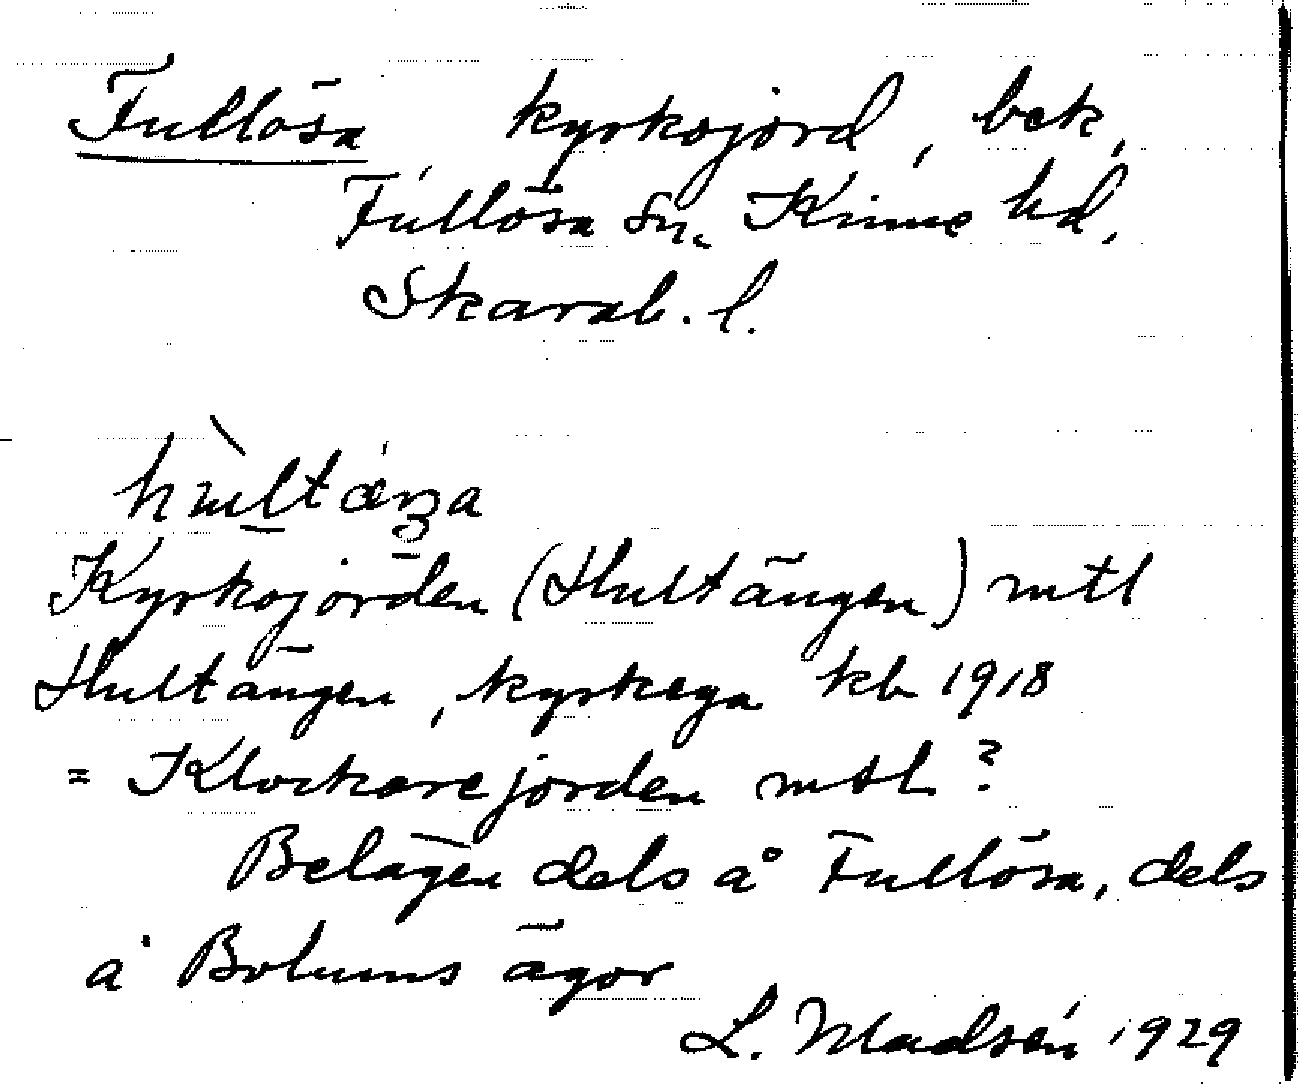 Fullösa, kyrkojord, bek,
Fullösa sn. Kinne hd,
Skarab. l.
Kyrkojorden (Hultängen) mtl
Hultängen, kyrkega kb 1918
= Klockarejorden mtl ?
Belägen dels å Fullösa, dels
å Bolums ägor
L. Madsén 1929